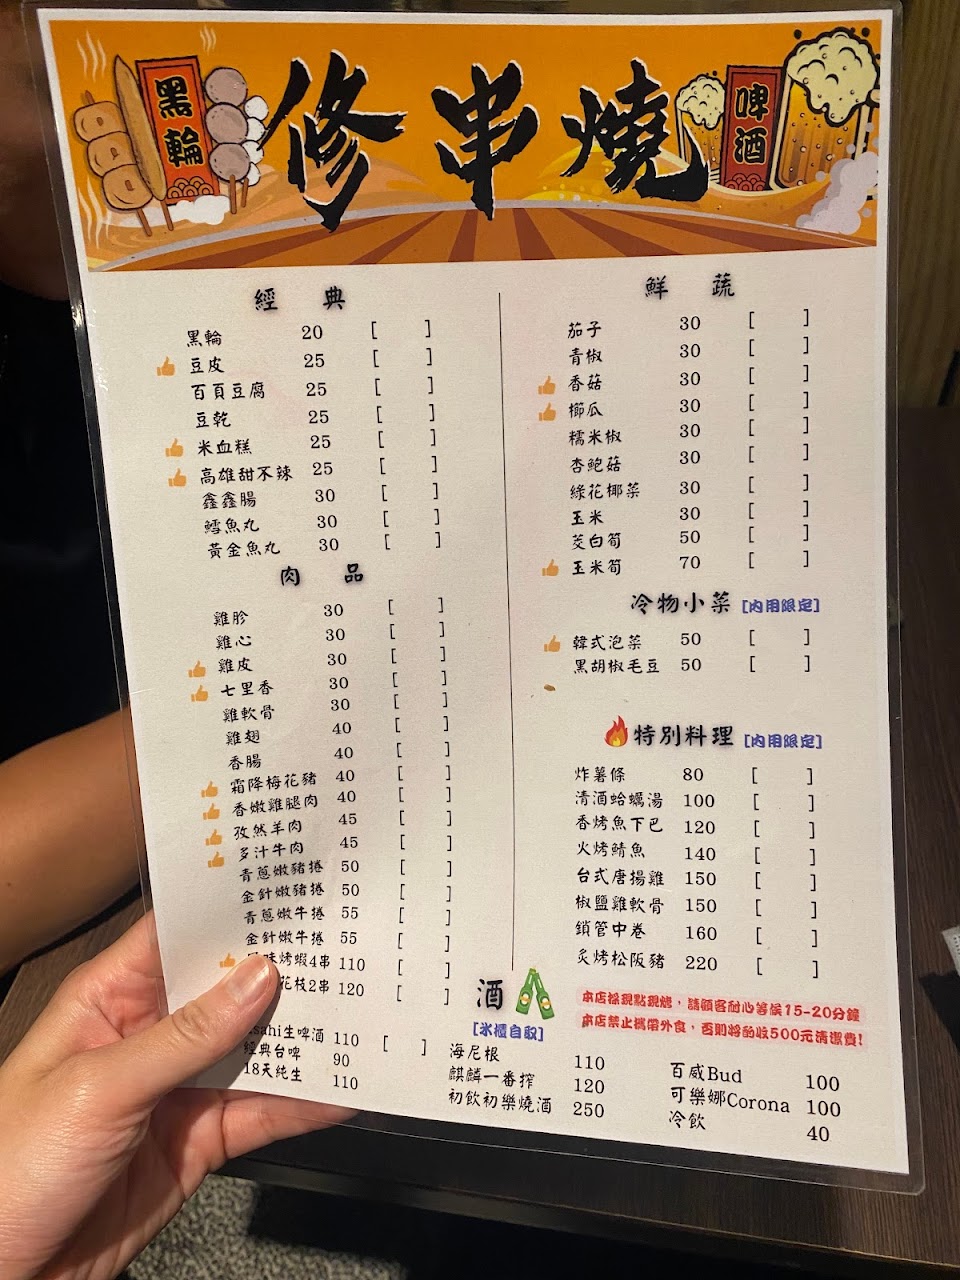 黑輪
修串燒
啤酒
經典
黑輪 20 [ ]
豆皮 25 [ ]
百頁豆腐 25 [ ]
豆乾 25 [ ]
米血糕 25 [ ]
高雄甜不辣 25 [ ]
鑫鑫腸 30 [ ]
鱈魚丸 30 [ ]
黃金魚丸 30 [ ]
肉品
雞胗 30 [ ]
雞心 30 [ ]
雞皮 30 [ ]
七里香 30 [ ]
雞軟骨 30 [ ]
雞翅 40 [ ]
香腸 40 [ ]
霜降梅花豬 40 [ ]
香嫩雞腿肉 40 [ ]
孜然羊肉 45 [ ]
多汁牛肉 45 [ ]
青蔥嫩豬捲 50 [ ]
金針嫩豬捲 50 [ ]
青蔥嫩牛捲 55 [ ]
金針嫩牛捲 55 [ ]
味烤蝦4串 110 [ ]
花枝2串 120 [ ]
鮮蔬
茄子 30 [ ]
青椒 30 [ ]
香菇 30 [ ]
櫛瓜 30 [ ]
糯米椒 30 [ ]
杏鮑菇 30 [ ]
綠花椰菜 30 [ ]
玉米 30 [ ]
茭白筍 50 [ ]
玉米筍 70 [ ]
冷物小菜 [內用限定]
韓式泡菜 50 [ ]
黑胡椒毛豆 50 [ ]
特別料理 [內用限定]
炸薯條 80 [ ]
清酒蛤蠣湯 100 [ ]
香烤魚下巴 120 [ ]
火烤鯖魚 140 [ ]
台式唐揚雞 150 [ ]
椒鹽雞軟骨 150 [ ]
鎖管中卷 160 [ ]
炙烤松阪豬 220 [ ]
酒
[冰櫃自取]
本店採現點現烤，請顧客耐心等候15-20分鐘
本店禁止攜帶外食，否則將酌收500元清潔費!
sahi生啤酒 110 [ ]
經典台啤 90
18天純生 110
海尼根 110
麒麟一番搾 120
初飲初樂燒酒 250
百威Bud 100
可樂娜Corona 100
冷飲 40